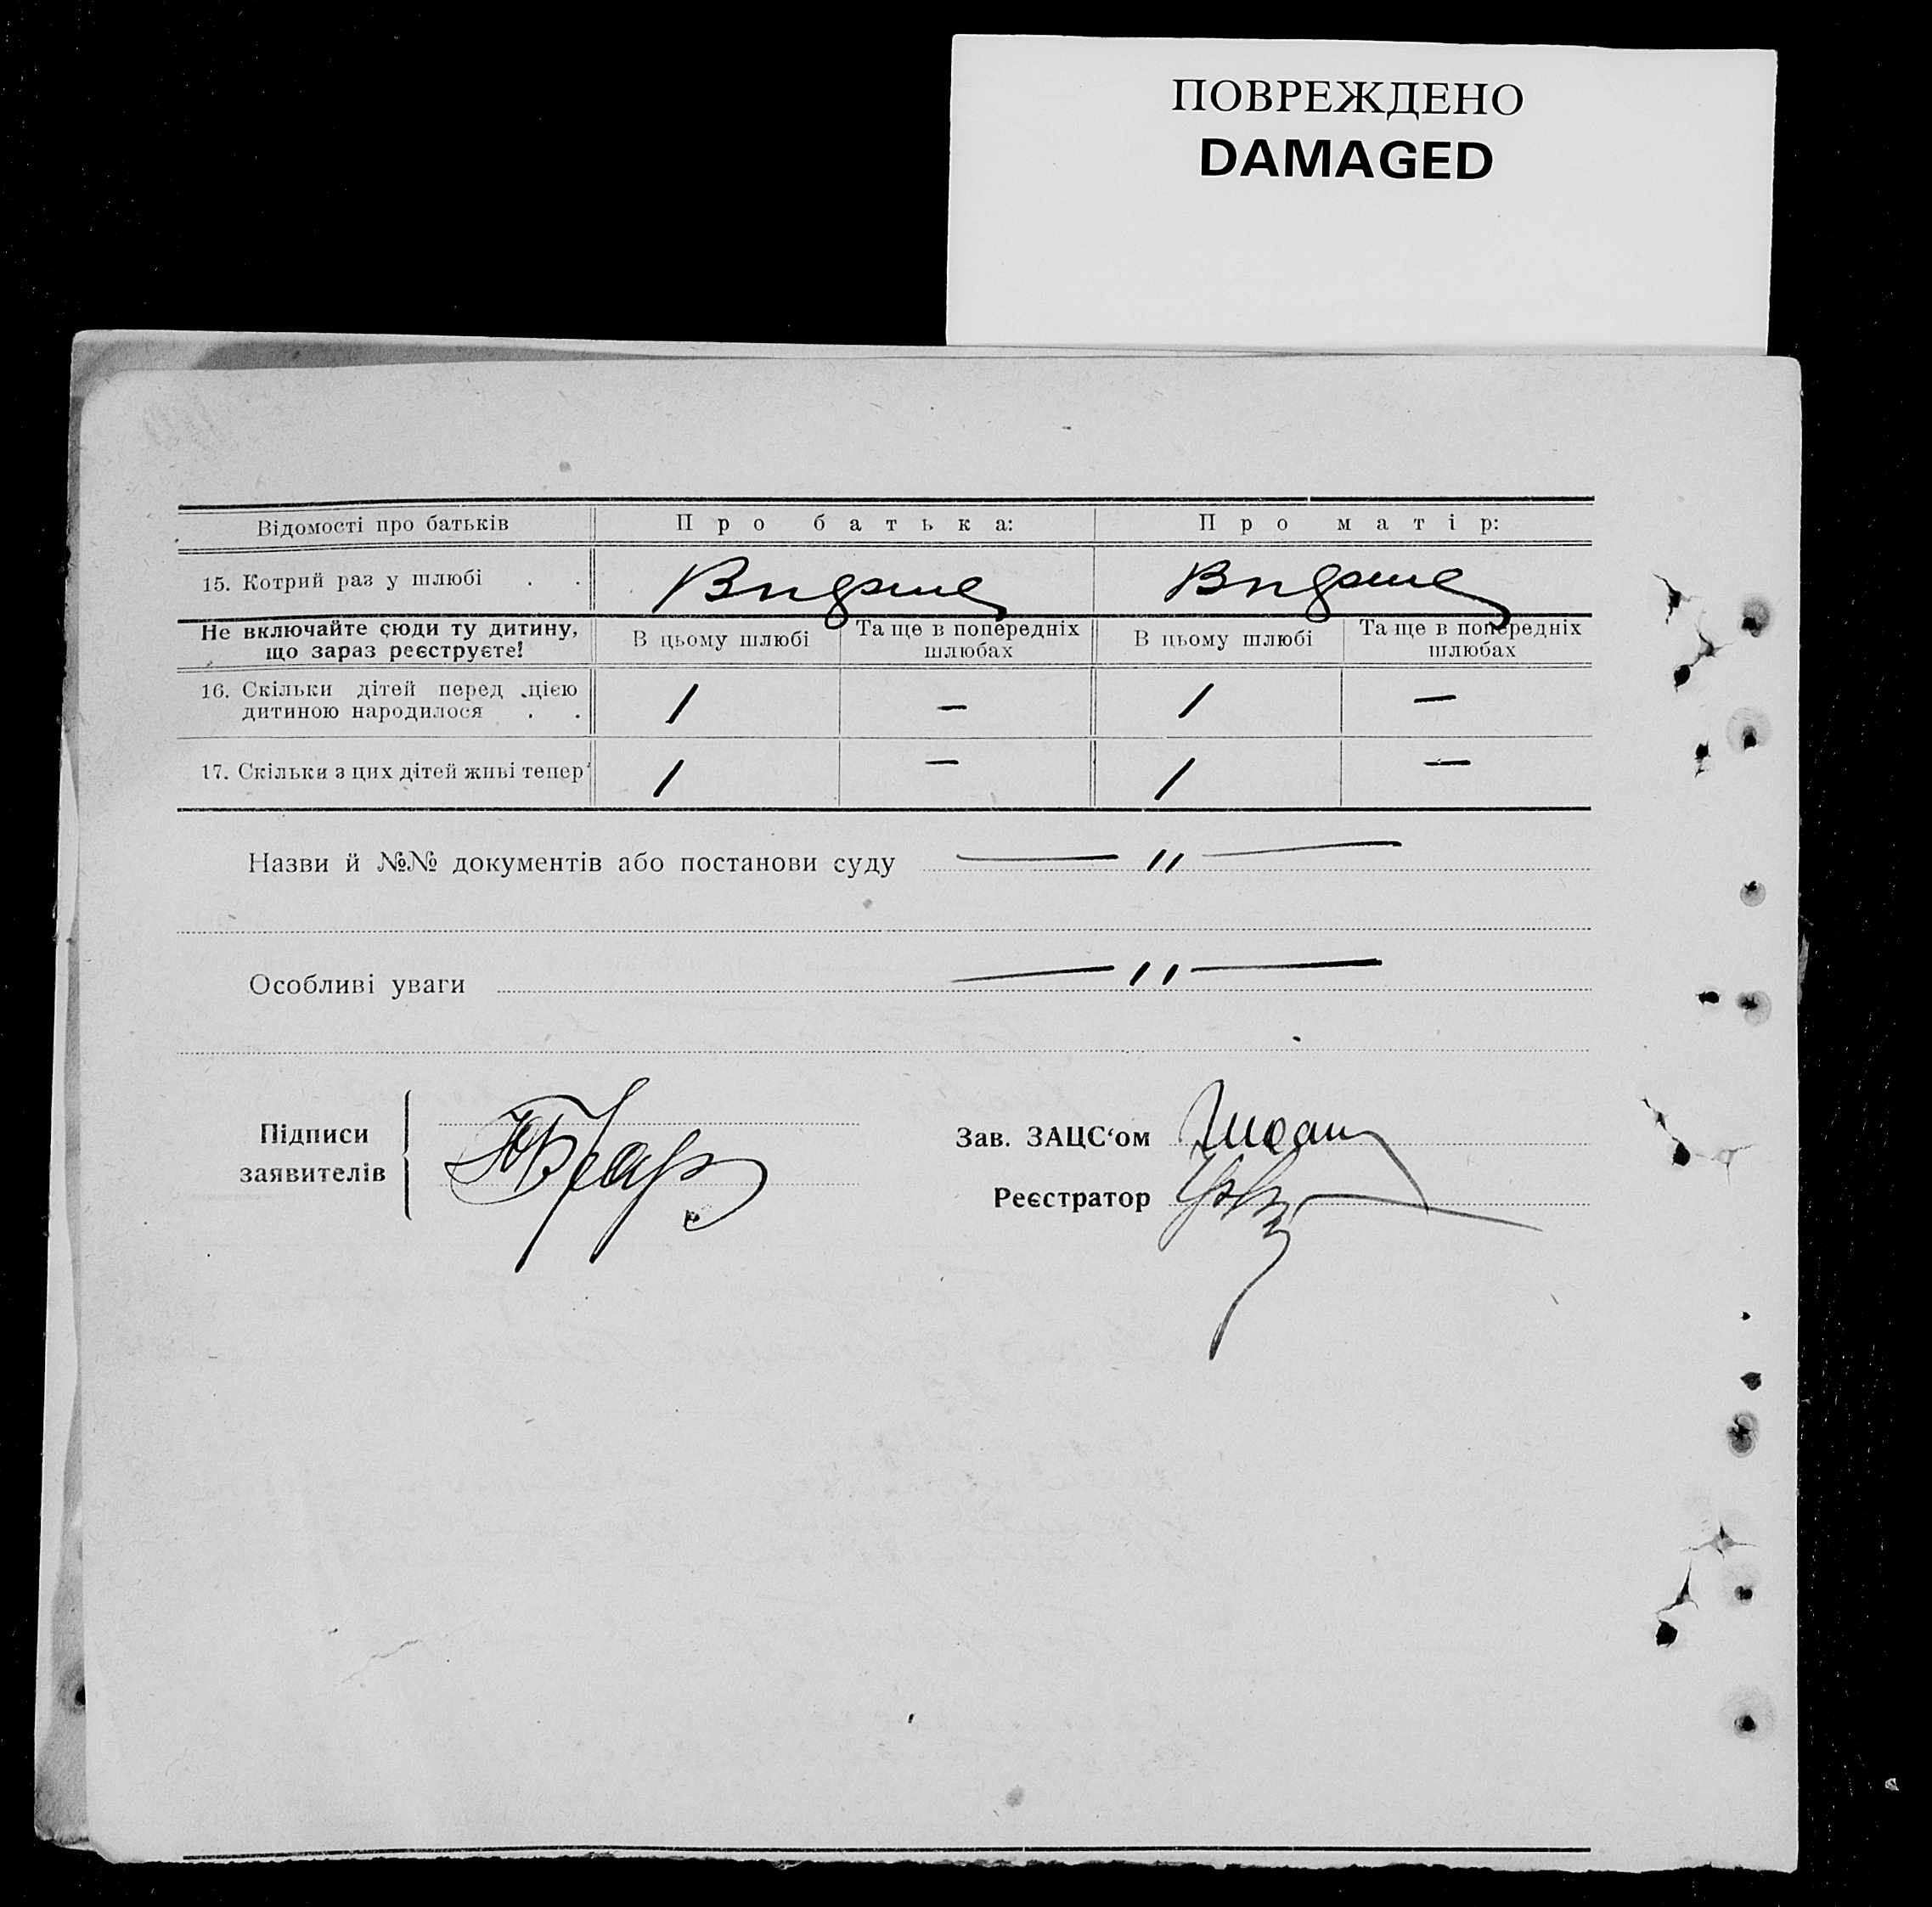 ПОВРЕЖДЕНО
DAMAGED
Відомості про батьків
Про батька:
Про матір:
15. Котрий раз у шлюбі . .
Вперше
Вперше
Не включайте сюди ту дитину,
що зараз реєструєте!
В цьому шлюбі
Та ще в попередніх
шлюбах
В цьому шлюбі
Та ще в попередніх
шлюбах
16. Скільки дітей перед цією
дитиною народилося . .
1
—
1
—
17. Скільки з цих дітей живі тепер
1
—
1
—
Назви й №№ документів або постанови суду — " —
Особливі уваги — " —
Підписи
заявителів
Зав. ЗАЦС‘ом
Реєстратор